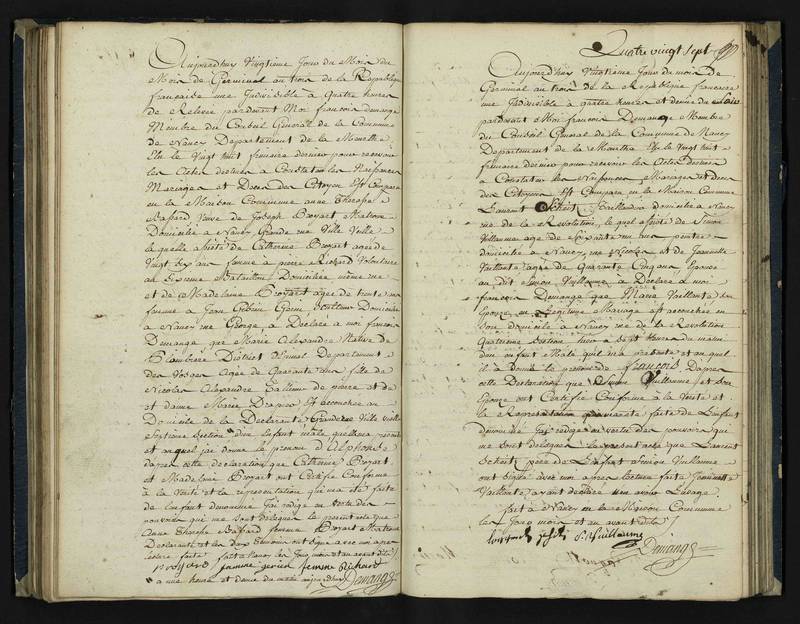 Aujourdhuy Vingtieme Jour du Mois du
Mois de Germinal an trois de la Republique
française une Indivisible a Quatre heures
de Releve pardevant Moi francois demange
Membre du Conseil General de la Commune
de Nancy Departement de la Meurthe
Elu le Vingt huit frimaire dernier pour recevoir
les Actes destines a Constater les Naissances
Mariages et Deces des Citoyens Est Comparu
en la Maison Commune anne therese
Bassard Veuve de Joseph Broyart Matrone
Domiciliée a Nancy Grande rue Ville Vieille
la quelle assistée de Catherine Broyart agée de
Vingt six ans femme a pierre Richard Volontaire
au Bataillon Domiciliée même rue
et de Madelaine Broyart agée de trente ans
femme a Jean Domicilié
a Nancy rue George, a Déclaré a moi francois
Demange que Marie Alexandre Native de
Plombiere District Departement
des Vosges Agée de Quarante ans fille de
Nicolas Alexandre tailleur de pierre et de
et d'anne Marie est accouchée au
Domicile de la Declarante Grande rue Ville vieille
Septieme Section d'un Enfant male quelle ma presenté
et auquel jai donné le prenom d'Alphonse
dapres cette declaration que Catherine Broyart
et Madelaine Broyart ont Certifié Conforme
à la Verité et la representation qui ma été faite
de l'enfant denommé Jai redigé en vertu des
pouvoirs qui me sont délegués le present acte que
Anne therese Bassard femme Broyart Matrone
Declarante et les deux temoins ont signé avec moi apres
lecture faite fait a Nancy les Jour mois et an avant dits
Broyard femme femme Richard
a une heure et demie du matin aujourdhuy Demange
Quatre vingt Sept
Aujourdhuy Vingtieme Jour du mois de
Germinal an trois de la République francaise
une Indivisible a quatre heures et demie du Soir
pardevant Moi François Demange Membre
du Conseil General de la Commune de Nancy
Departement de la Meurthe Elu le vingt huit
frimaire dernier pour recevoir les Actes destinés
a Constater les Naissances, Mariages et deces
des Citoyens Est Comparu en la Maison Commune
Laurent Scheit domicilié a Nancy
rue de la Revolution, le quel assisté de Simon
Vuillaume agé de Soixante ans pointre
domicilié a Nancy, rue Nicolas et de Jeannette
Vaillante agée de Quarante Cinq ans, Epouse
au dit Simon Vuillaume, a Déclaré a moi
francois Demange que Marie Vaillante son
Epouse, en Legitime Mariage est accouchée en
son domicile a Nancy rue de la Revolution
Quatrieme Section hier a Sept Heures du matin
dun enfant Male qu'il m'a présenté et auquel
il a donné le prenom de françois. Dapres
cette Declaration que Simon Vuillaume et son
Epouse ont Certifié Conforme a la Verité et
la Representation qui m'a été faite de l'Enfant
denommé Jai redigé en vertu des pouvoirs qui
me sont delegués le present acte que Laurent
Scheit père de l'Enfant Simon Vuillaume
ont signé avec moi apres lecture faite Jeannette
Vaillante ayant déclaré n'en avoir l'usage.
fait a Nancy en la Maison Commune
les Jour mois et an avant dits
S. Vuillaume
Demange